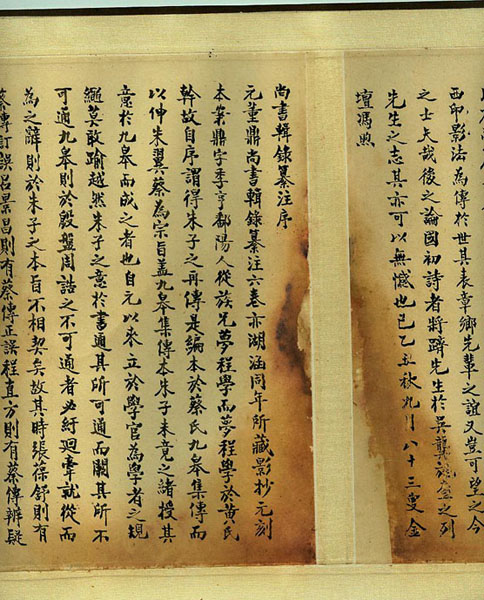 西印影法為傳於世其表章鄉先輩之誼又豈可望之今
之士夫哉後之論國初詩者將躋先生於吳龔之列
先生之志其亦可以無憾也已乙丑秋九月八十三叟金
壇馮煦
尚書輯錄纂注序
元董鼎尚書輯錄纂注六卷亦湖涵同年所藏影抄元刻
本案鼎字季亨鄱陽人從族兄夢程學而夢程學於黃氏
幹故自序謂得朱子之再傳是編本於蔡氏九皋集傳而
以伸朱翼蔡為宗旨蓋九皋集傳本朱子未竟之緒授其
意於九皋而成之者也自元以來立於學官為學者之規
繩莫敢踰越然朱子之意於書通其所可通而闕其所不
可通九皋則於殷盤周誥之不可通者必紆迴牽就從而
為之辭則於朱子之本旨不相契矣故其時張葆舒則有
蔡傳訂誤呂景昌則有蔡傳正誤程直方則有蔡傳辨疑